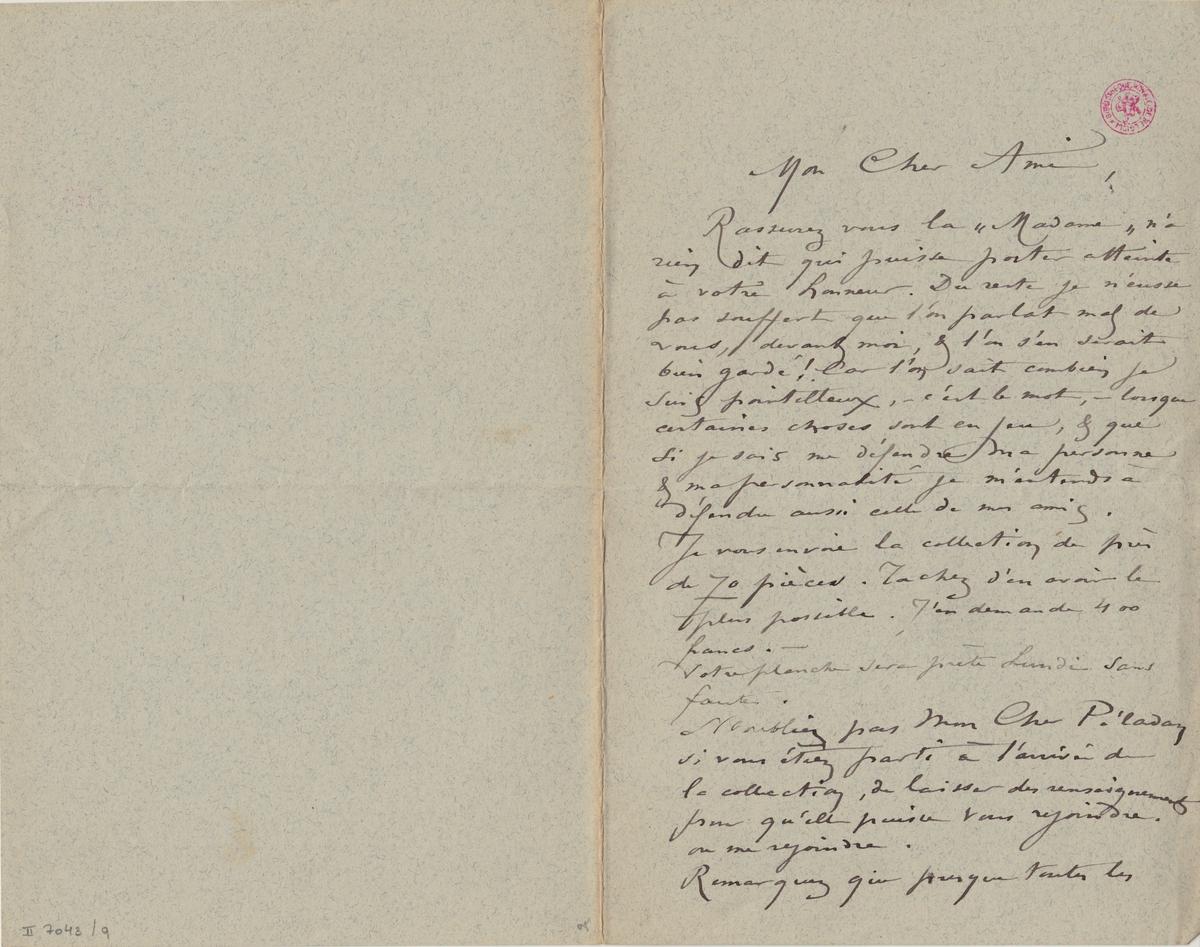 Mon Cher Ami !
Rassurez vous la „Madame„ n'a
rien dit qui puisse porter atteinte
à votre honneur. Du reste je n'eusse
pas souffert que l'on parlat mal de
vous, devant moi, & l'on s'en serait
bien gardé! Car l'on sait combien je
suis pointilleux, – c'est le mot, – lorsque
certaines choses sont en jeu, & que
si je sais me défendre ma personne
& ma personnalité je m'entends à
défendre aussi celle de mes amis.
Je vous envoie la collection de près
de 70 pièces. Tachez d'en avoir le
plus possible. J'en demande 400
francs. —
Votre planche sera prête Lundi sans
faute.
N'oubliez pas Mon Cher Péladan
si vous étiez parti à l'arrivée de
la collection, de laisser des renseignements
pour qu'elle puisse vous rejoindre.
ou me rejoindre.
Remarquez que presque toutes les
II 7043 / 9